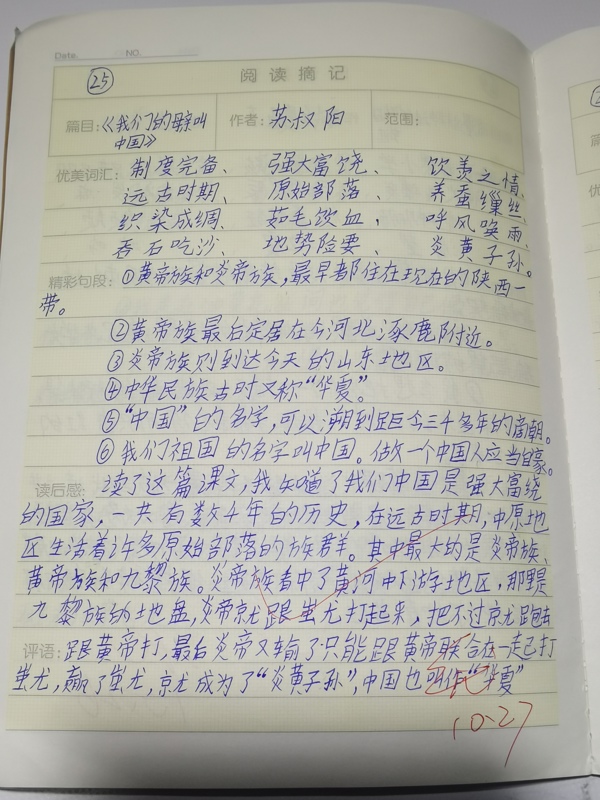 Date. NO.
25 阅读摘记
篇目:《我们的母亲叫 作者:苏叔阳 范围:
中国》
优美词汇: 制度完备、 强大富饶、 饮羡之情、
远古时期、 原始部落、 养蚕缫丝、
织染成绸、 茹毛饮血, 呼风唤雨、
吞石吃沙、 地势险要、 炎黄子孙。
精彩句段: ①黄帝族和炎帝族,最早都住在现在的陕西一
带。
②黄帝族最后定居在今河北涿鹿附近。
③炎帝族则到达今天的山东地区。
④中华民族古时又称“华夏”。
⑤“中国”的名字,可以溯到距今三千多年的商朝。
⑥我们祖国的名字叫中国。做一个中国人应当自豪。
读后感: 读了这篇课文,我知道了我们中国是强大富绕
的国家,一共有数千年的历史,在远古时期,中原地
区生活着许多原始部落的族群。其中最大的是炎帝族、
黄帝族和九黎族。炎帝族看中了黄河中下游地区,那里是
九黎族的地盘,炎帝京尤跟蚩尤打起来,把不过京尤跑去
评语: 跟黄帝打,最后炎帝又输了只能跟黄帝联合在一走己打
蚩尤,赢了蚩尤,京尤成为了“炎黄子孙”,中国也叫作“华夏”
10-27